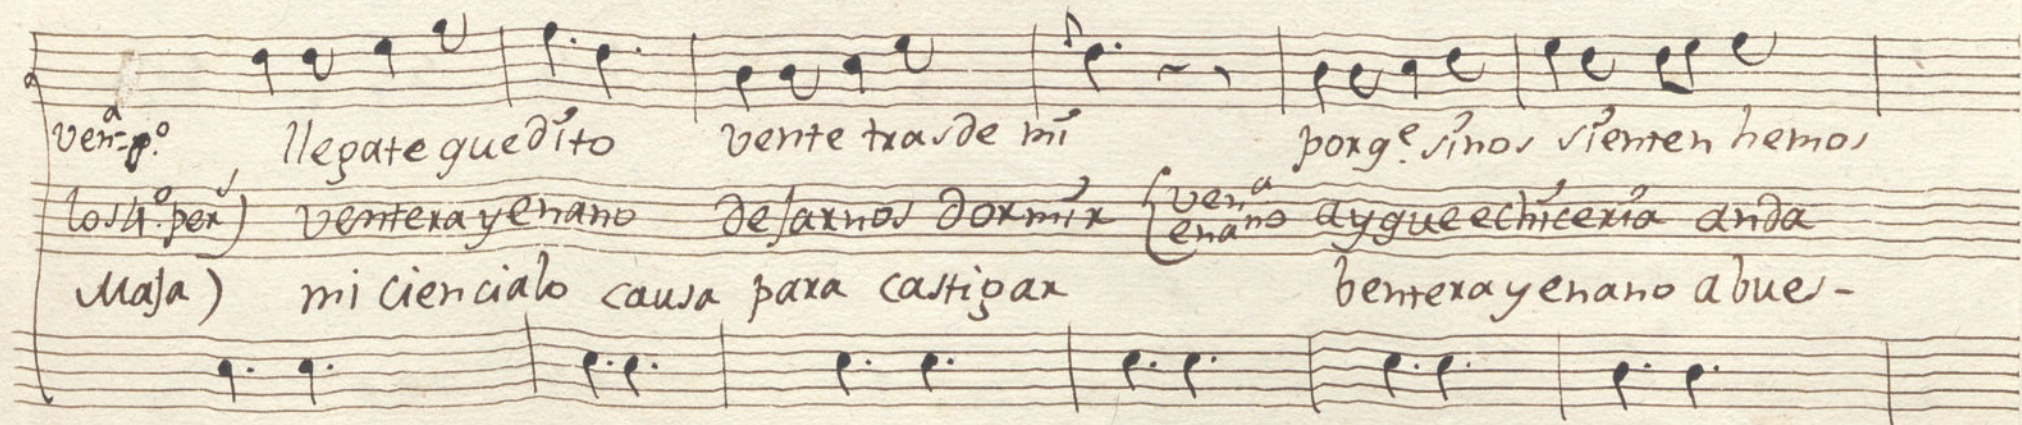 ven-ª pº llegate quedito vente tras de mi porqe. si nos sienten hemos
los 4º. pers) ventera y enano dejarnos dormir (venª enano ay que echiceria anda
Maja) mi ciencia lo causa para castigar bentera y enano a bues-